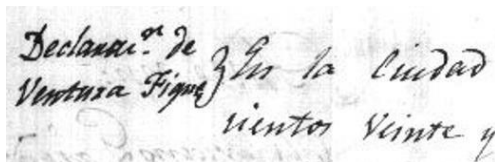 Declarac.ⁿ de
Ventura Figue
En la Ciudad
cientos Veinte y